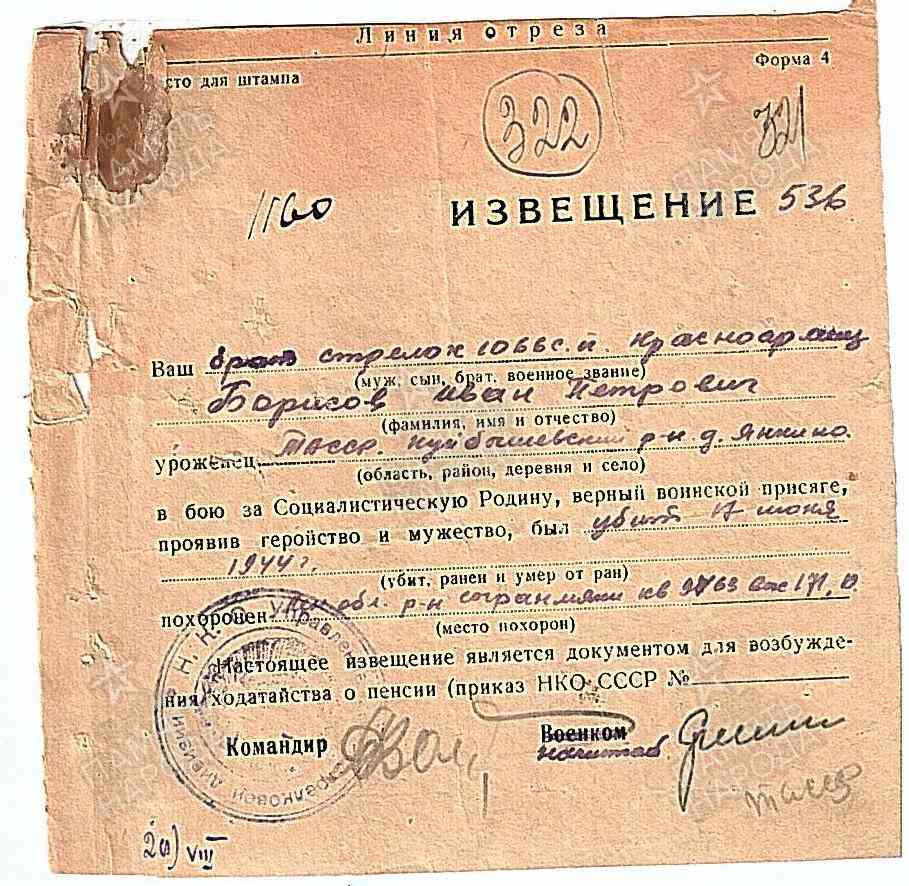 Линия отреза
сто для штампа
Форма 4
322
321
1160
ИЗВЕЩЕНИЕ 536
Ваш брат стрелок 1066 с.п. Красноармеец
(муж, сын, брат, военное звание)
Борисов Иван Петрович
(фамилия, имя и отчество)
уроженец ТАССР. Куйбышевский р-н д. Янкино.
(область, район, деревня и село)
в бою за Социалистическую Родину, верный воинской присяге,
проявив геройство и мужество, был убит 17 июня
1944 г.
(убит, ранен и умер от ран)
похоронен обл. р-н кв
(место похорон)
Настоящее извещение является документом для возбужде-
ния ходатайства о пенсии (приказ НКО СССР №
Командир
Военком
начштаб
Н.К.О. Управление стрелковой дивизии
VIII
ПАМЯТЬ НАРОДА